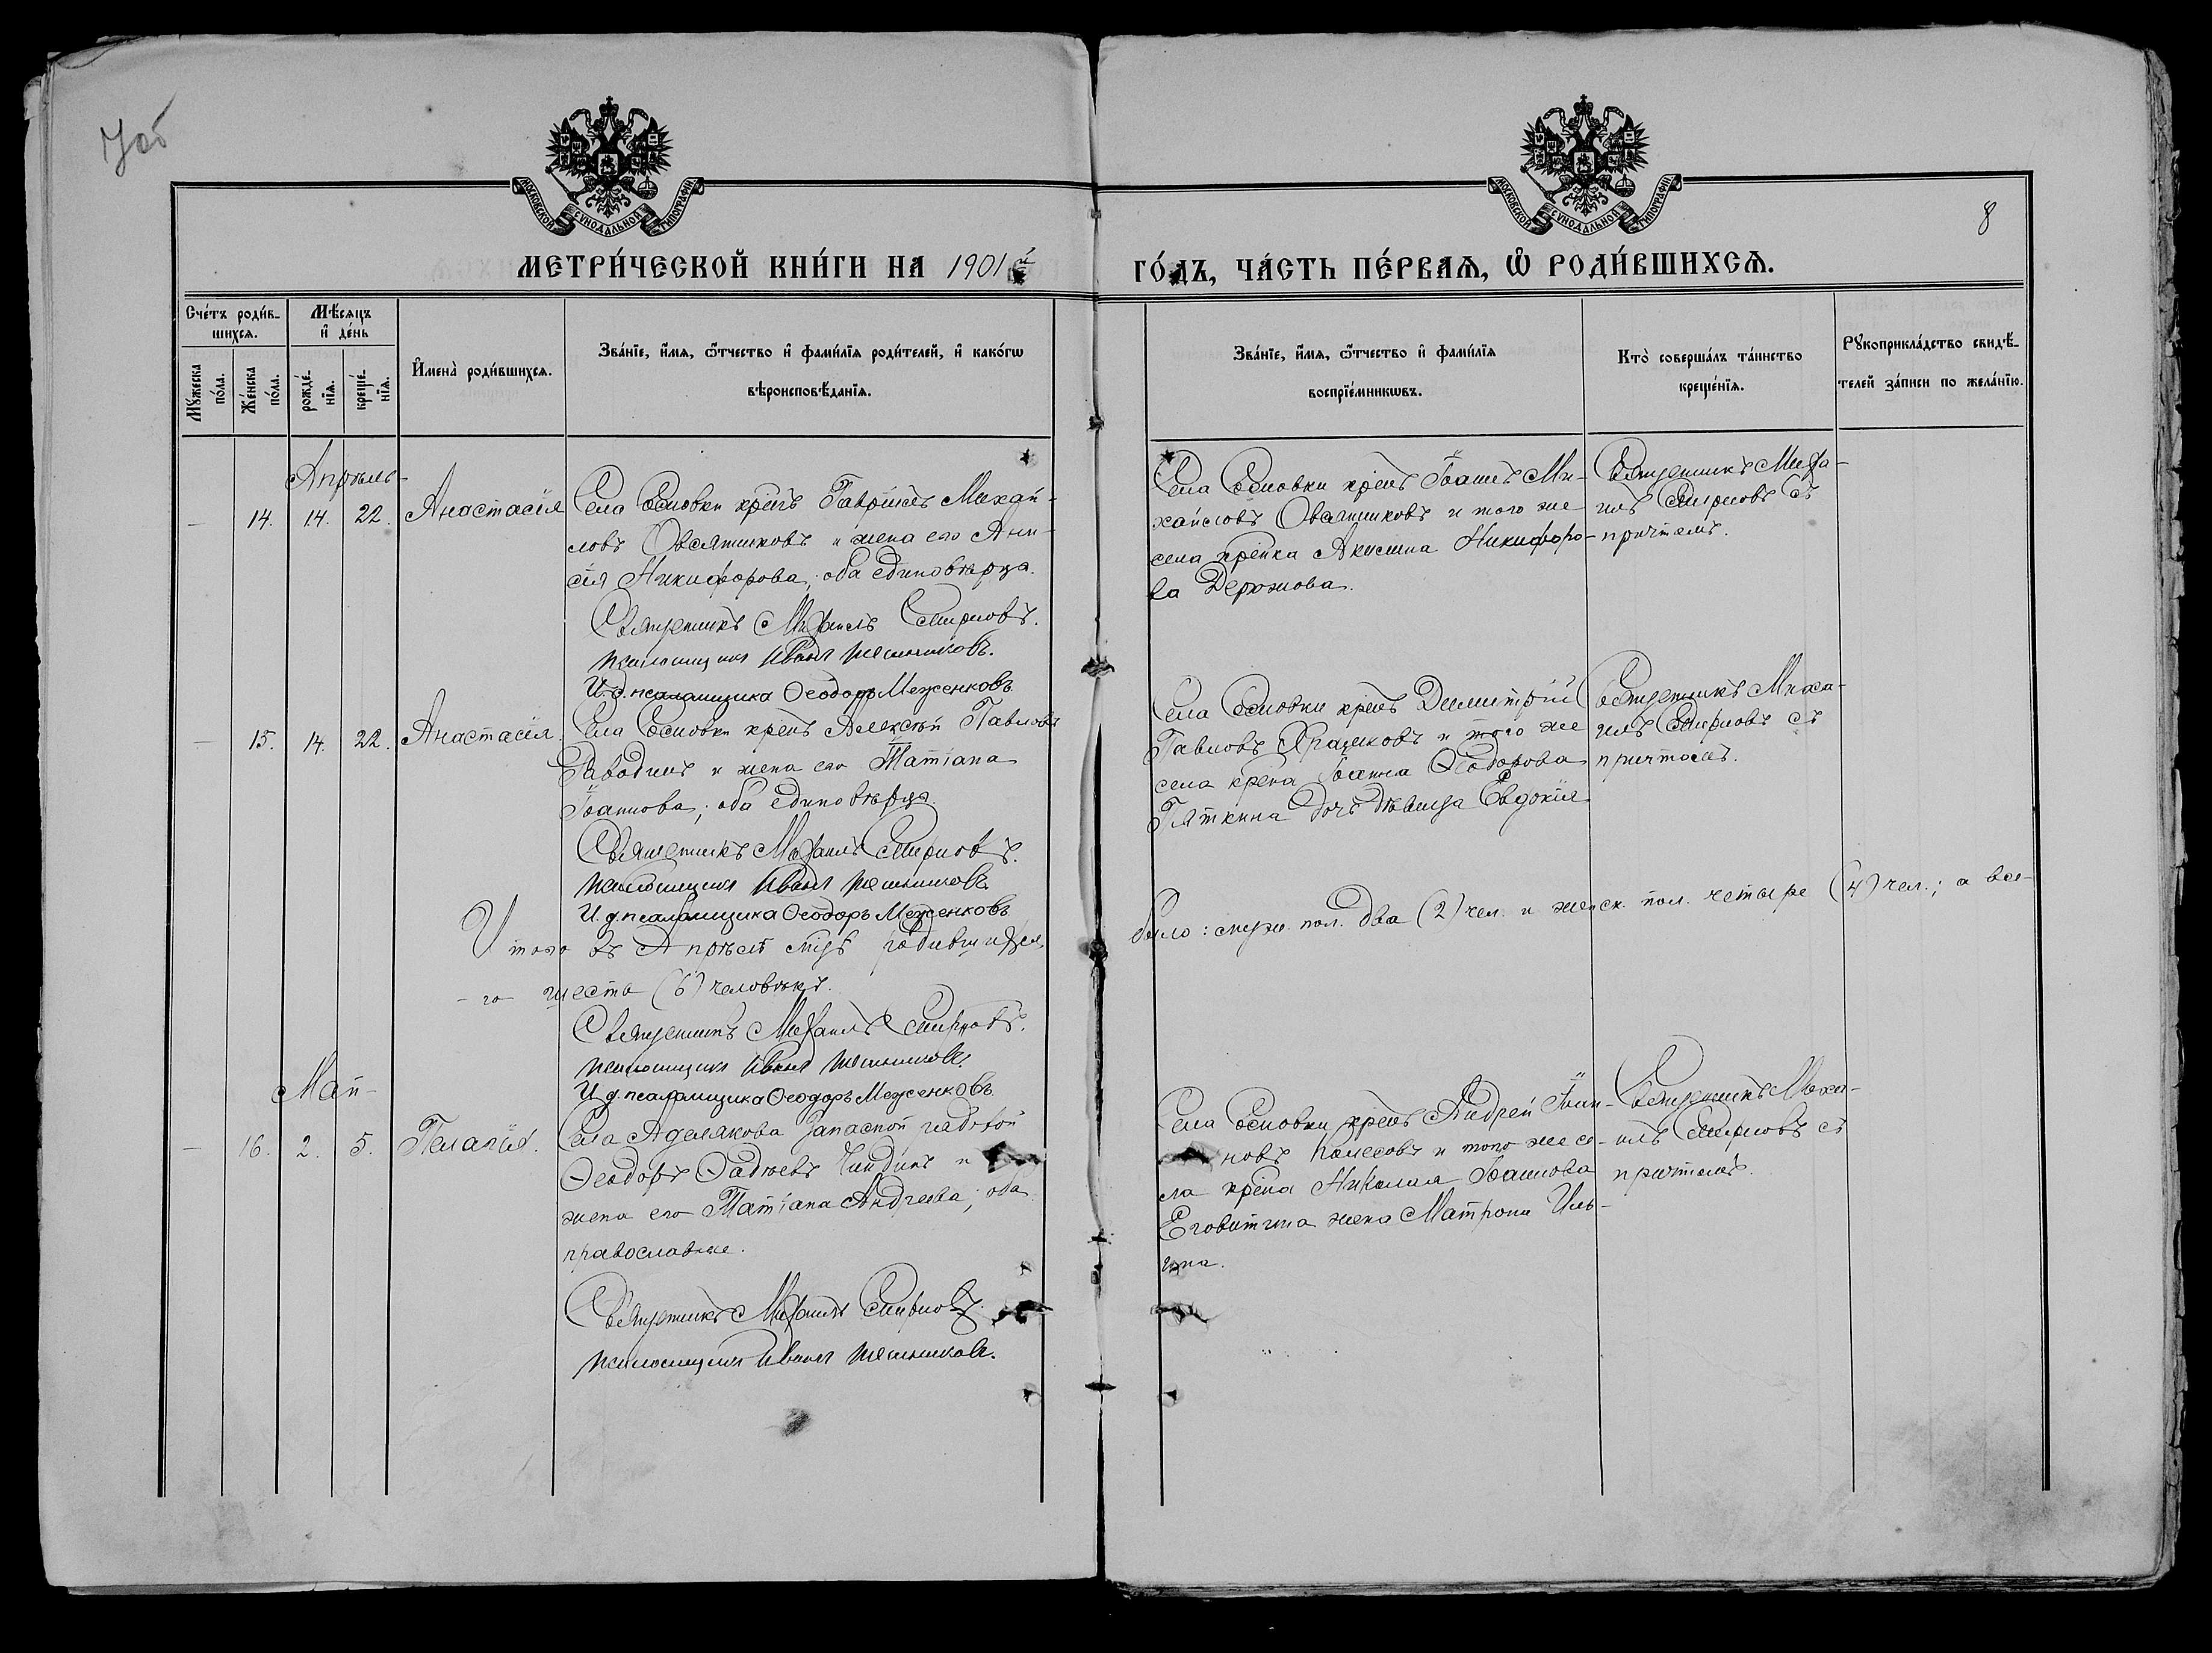 7об
8
МОСКОВСКОЙ СѴНОДАЛЬНОЙ ТИПОГРАФІИ
МОСКОВСКОЙ СѴНОДАЛЬНОЙ ТИПОГРАФІИ
МЕТРИ́ЧЕСКОЙ КНИ́ГИ НА 1901 й
ГО́ДЪ, ЧА́СТЬ ПЕ́РВАѦ, Ѡ҆ РОДИ́ВШИХСѦ.
Сче́тъ роди́в-
шихсѧ.
Мѣ́сѧцъ
и҆ де́нь
Мꙋ́жеска
по́ла.
Же́нска
по́ла.
рожде́-
нїѧ.
креще́-
нїѧ.
И҆мена̀ роди́вшихсѧ.
Зва́нїе, и҆́мѧ, ѻ҆́тчество и҆ фами́лїѧ роди́телей, и҆ како́гѡ
вѣроисповѣ́данїѧ.
Зва́нїе, и҆́мѧ, ѻ҆́тчество и҆ фами́лїѧ
воспрїе́мникѡвъ.
Кто̀ соверша́лъ та́инство
креще́нїѧ.
Рꙋкоприкла́дство свидѣ́-
телей за́писи по жела́нїю.
Апрѣль
— 14. 14. 22. Анастасія
Села Осиновки крест Гавріилъ Михаи-
ловъ Овсянниковъ и жена его Ани-
сія Никифорова; оба единовѣрца.
Священникъ Михаилъ Смирновъ.
псаломщикъ Иванъ
И. д. псаломщика Ѳеодоръ Меженковъ
Села Осиновки крест Іоаннъ Ми-
хаиловъ Овсянниковъ и того же
села крест-ка Акилина Никифоро-
ва Дерюжова.
Священникъ Миха-
илъ Смирновъ съ
причтемъ.
— 15. 14. 22. Анастасія.
Села Осиновки крест Алексѣй Павловъ
и жена его Татіана
Іоаннова; оба единовѣрца.
Священникъ Михаилъ Смирновъ.
псаломщикъ Иванъ
И. д. псаломщика Ѳеодоръ Меженковъ
Села Осиновки крест Димитрій
Павловъ и того же
села крест-на Іоанна Ѳеодорова
Пяткина дочь дѣвица Евдокія
Священникъ Миха-
илъ Смирновъ съ
причтомъ.
Итого въ Апрѣлѣ м-цѣ родившихся
было: муж. пол. два (2) чел. и женск. пол. четыре (4) чел.; а все-
-го шесть (6) человѣкъ.
Священникъ Михаилъ Смирновъ.
псаломщикъ Иванъ
И. д. псаломщика Ѳеодоръ Меженковъ
Май
— 16. 2. 5. Пелагія.
Села Аделякова запасной рядовой
Ѳеодоръ Ѳадѣевъ и
жена его Татіана Андреева; оба
православные.
Священникъ Михаилъ Смирновъ.
псаломщикъ Иванъ
Села Осиновки крест Андрей Іоан-
новъ и того же се-
ла крест-на Николая Іоаннова
жена Матрона Иль-
ина.
Священникъ Миха-
илъ Смирновъ съ
причтомъ.